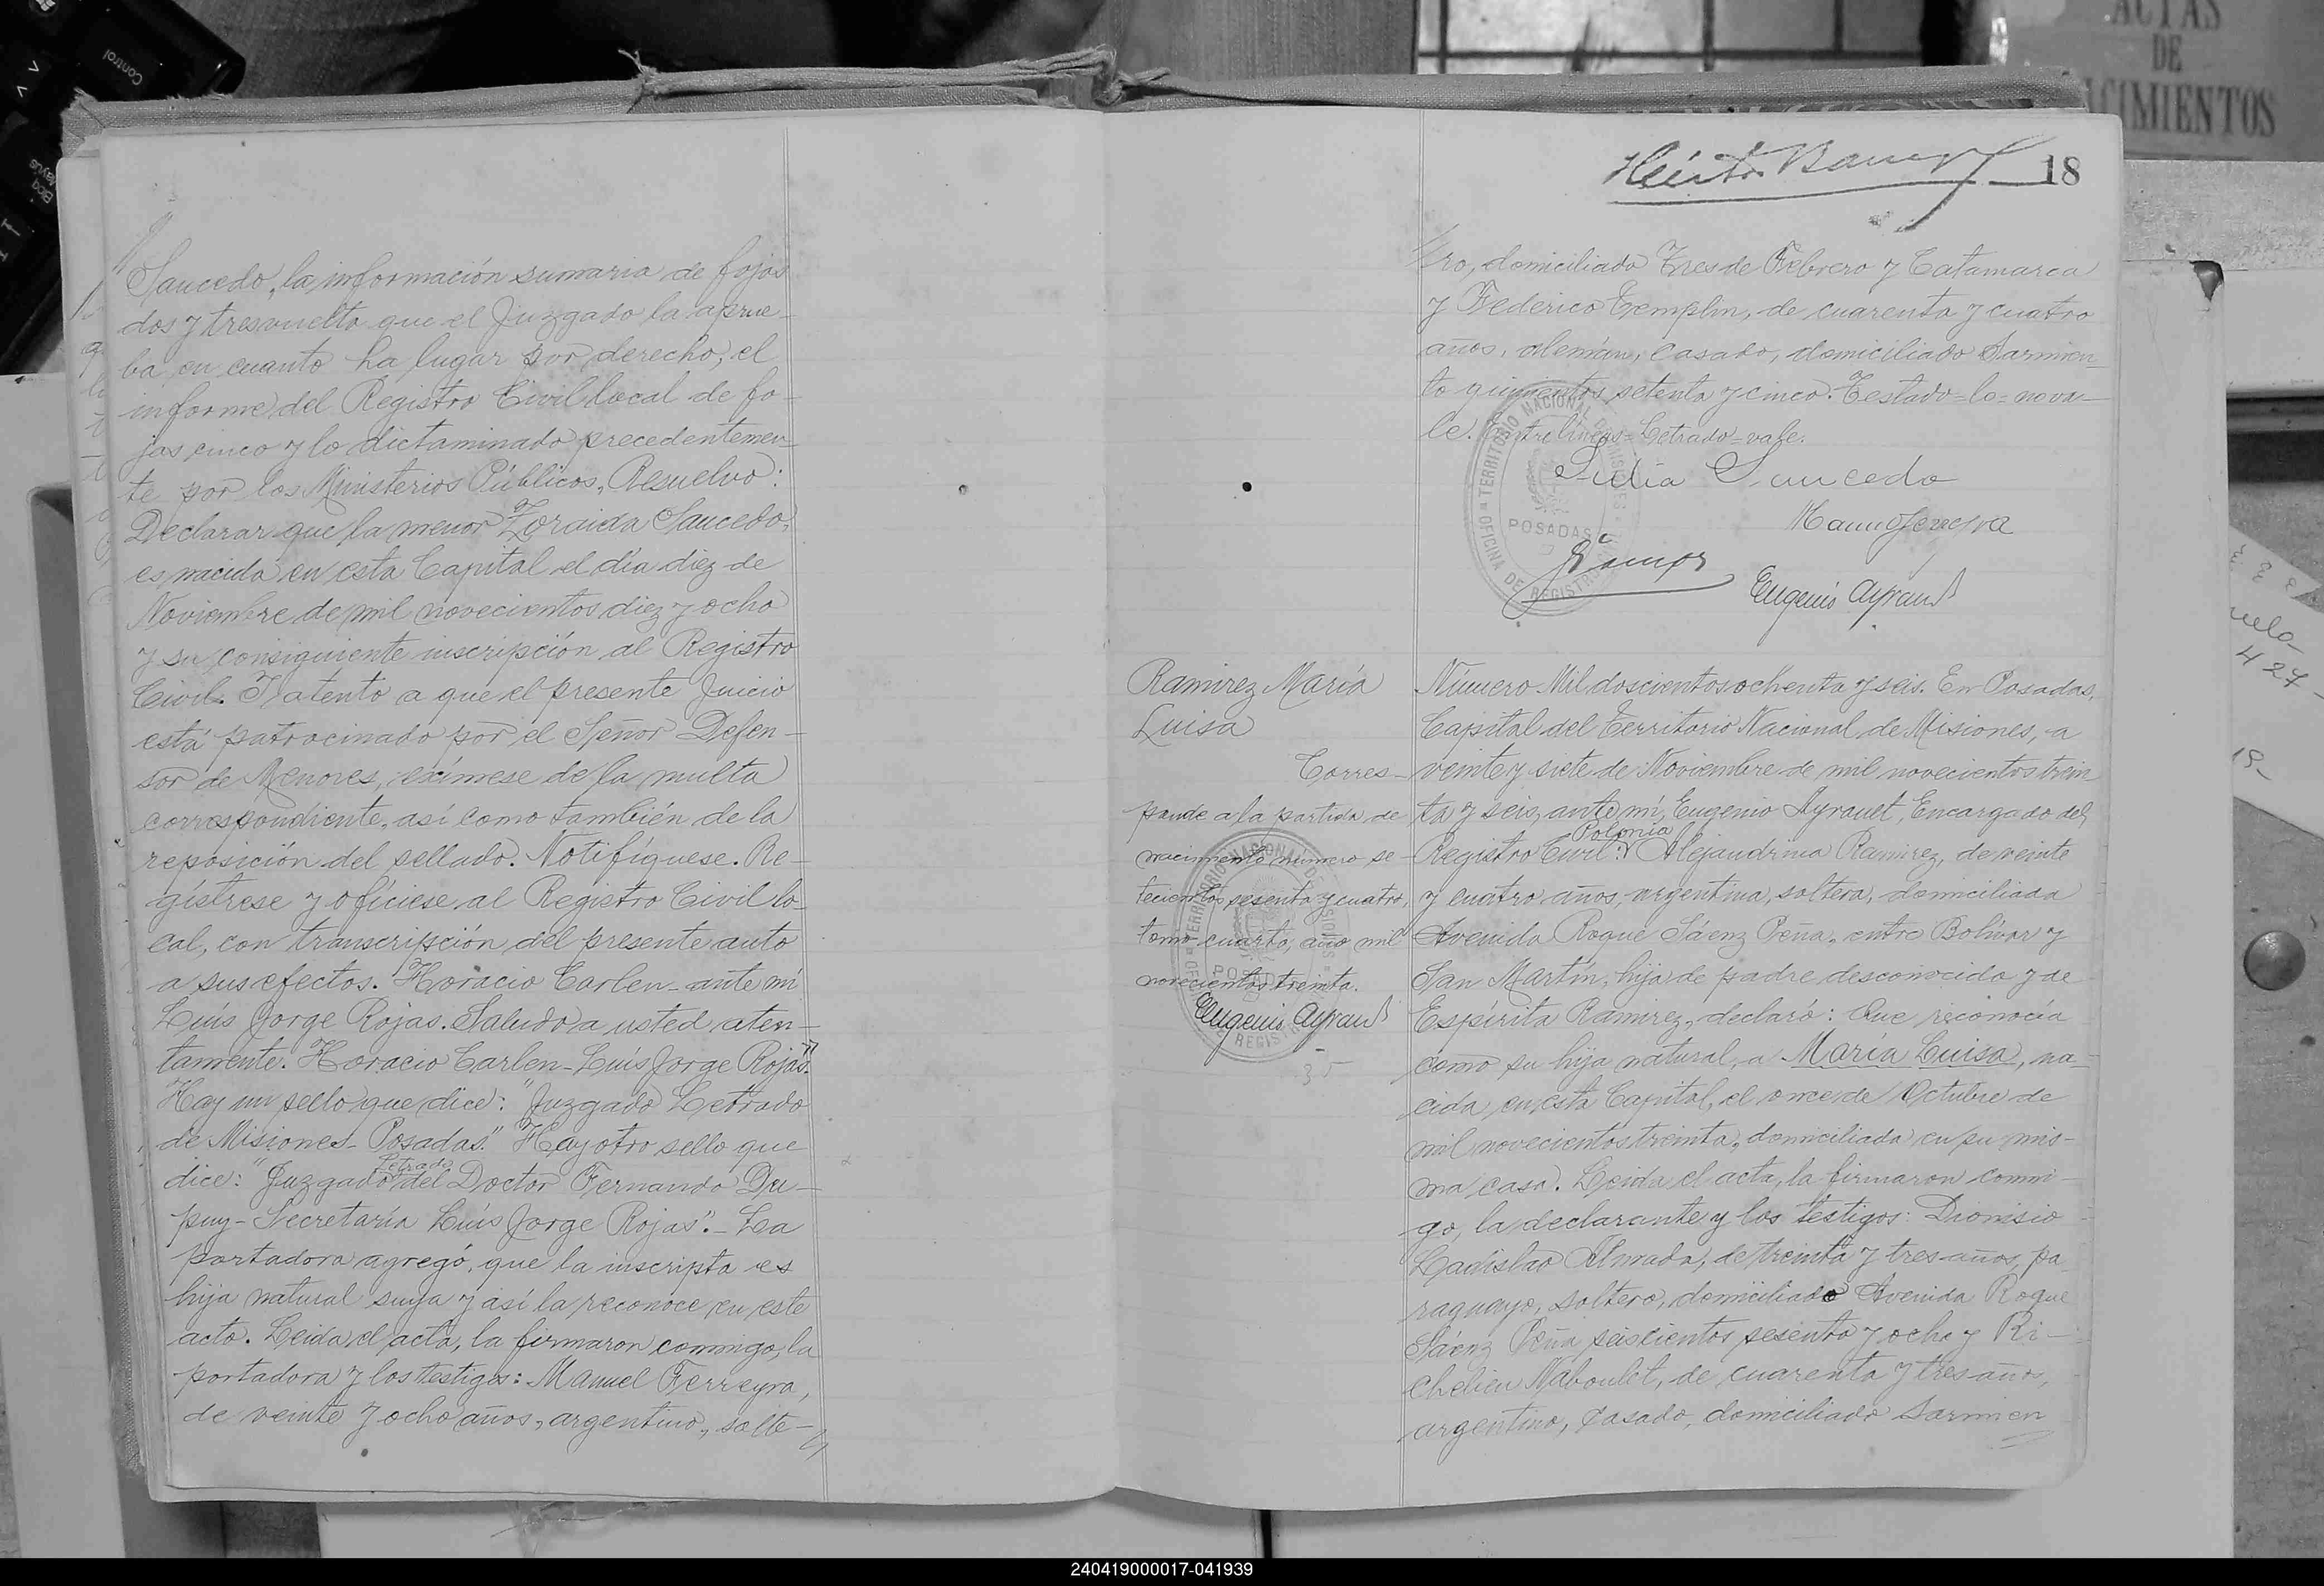 Control
Bloq
Mayús
ACTAS
DE
CIMIENTOS
Saucedo, la información sumaria de fojas
dos y tres vuelto que el Juzgado la aprue-
ba en cuanto ha lugar por derecho, el
informe del Registro Civil local de fo-
jas cinco y lo dictaminado precedentemen-
te por los Ministerios Públicos, Resuelvo:
Declarar que la menor Zoraida Saucedo,
es nacida en esta Capital el día diez de
Noviembre de mil novecientos diez y ocho
y su consiguiente inscripción al Registro
Civil. Y atento a que el presente Juicio
está patrocinado por el Señor Defen-
sor de Menores, exímese de la multa
correspondiente, así como también de la
reposición del sellado. Notifíquese. Re-
gístrese y ofíciese al Registro Civil lo-
cal, con transcripción del presente auto
a sus efectos. Horacio Carlen - ante mí
Luís Jorge Rojas. Saludo a usted aten-
tamente. Horacio Carlen - Luís Jorge Rojas."
Hay un sello que dice: "Juzgado Letrado
de Misiones - Posadas." Hay otro sello que
Letrado
dice: "Juzgado del Doctor Fernando Du-
puy - Secretaría Luís Jorge Rojas". - La
portadora agregó, que la inscripta es
hija natural suya y así la reconoce en este
acto. Leida el acta, la firmaron conmigo, la
portadora y los testigos: Manuel Ferreyra,
de veinte y ocho años, argentino, solte-//
18
//ro, domiciliado Tres de Febrero y Catamarca
y Federico Templin, de cuarenta y cuatro
años, alemán, casado, domiciliado Sarmien-
to quinientos setenta y cinco. Testado = lo = no va-
le. Entre líneas = Letrado = vale.
Julia Saucedo
Manu Ferreyra
Eugenio Ayraut
POSADAS
Ramirez María
Luisa
Corres-
ponde a la partida de
nacimiento número se-
tecientos sesenta y cuatro,
tomo cuarto, año mil
novecientos treinta.
Eugenio Ayraut
35
Número Mil doscientos ochenta y seis. En Posadas,
Capital del Territorio Nacional de Misiones, a
veinte y siete de Noviembre de mil novecientos trein
ta y seis, ante mí, Eugenio Ayrauet, Encargado del
Polonia
Registro Civil: Alejandrina Ramirez, de veinte
y cuatro años, argentina, soltera, domiciliada
Avenida Roque Sáenz Peña, entre Bolívar y
San Martín, hija de padre desconocido y de
Espírita Ramirez, declaró: Que reconocía
como su hija natural, a María Luisa, na-
cida en esta Capital, el once de Octubre de
mil novecientos treinta, domiciliada en su mis-
ma casa. Leida el acta, la firmaron conmi-
go, la declarante y los testigos: Dionisio
Ladislao Almada, de treinta y tres años, pa
raguayo, soltero, domiciliado Avenida Roque
Sáenz Peña seiscientos sesenta y ocho y Ri-
chelieu Naboulet, de cuarenta y tres años,
argentino, casado, domiciliado Sarmien
427
240419000017-041939